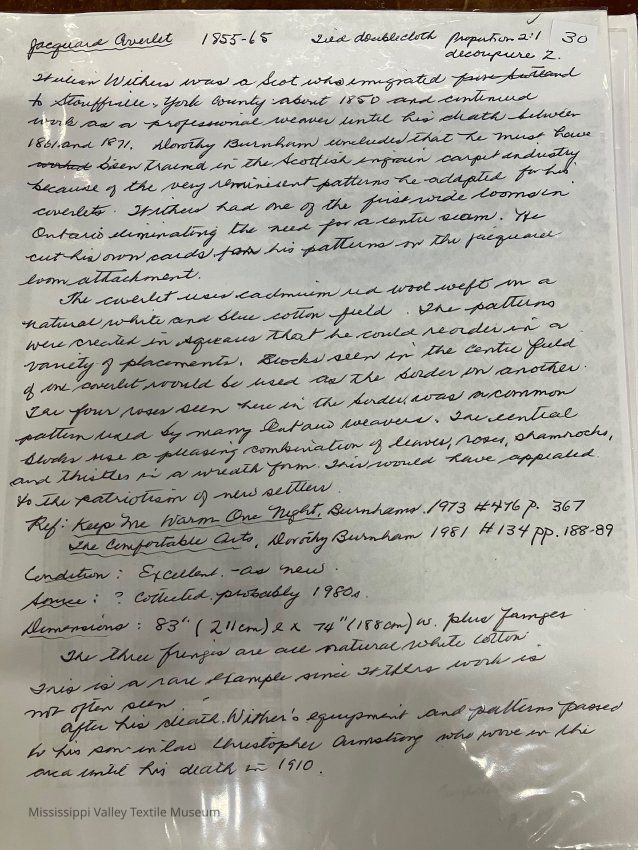 Jacquard Coverlet 1855-65 Tied doublecloth Proportion 2:1 30
decoupure 2.
William Withers was a Scot who immigrated from Scotland
to Stouffville, York County about 1850 and continued
work as a professional weaver until his death between
1861 and 1871. Dorothy Burnham concludes that he must have
worked been trained in the Scottish ingrain carpet industry
because of the very reminisent patterns he adapted for his
coverlets. Withers had one of the first wide looms in
Ontario eliminating the need for a centre seam. He
cut his own cards for his patterns on the jacquard
loom attachment.
The coverlet uses cadmium red wool weft on a
natural white and blue cotton field. The patterns
were created in squares that he could reorder in a
variety of placements. Blocks seen in the centre field
of one coverlet would be used as the border on another.
The four roses seen here in the border was a common
pattern used by many Ontario weavers. The central
blocks use a pleasing combination of leaves, roses, shamrocks,
and thistles in a wreath form. This would have appealed
to the patriotism of new settlers.
Ref: Keep Me Warm One Night, Burnhams. 1973 #476 p. 367
The Comfortable Arts, Dorothy Burnham 1981 #134 pp. 188-89
Condition: Excellent - as new.
Source: ? Collected probably 1980s.
Dimensions: 83" (211cm) l x 74" (188cm) w. plus fringes
The three fringes are all natural white cotton
This is a rare example since Withers work is
not often seen.
After his death Wither's equipment and patterns passed
to his son-in-law Christopher Armstrong who wove in the
area until his death in 1910.
Mississippi Valley Textile Museum